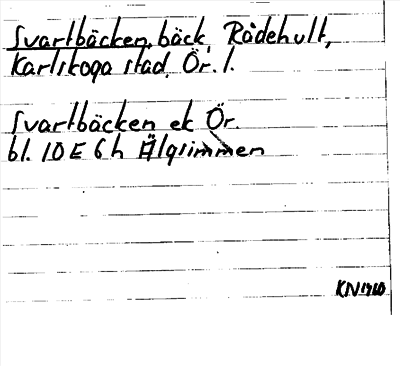 Svartbäcken, bäck, Rådehult,
Karlskoga stad, Ör. l.
Svartbäcken ek Ör.
bl. 10 E 6 h Älgsimmen
KN1960